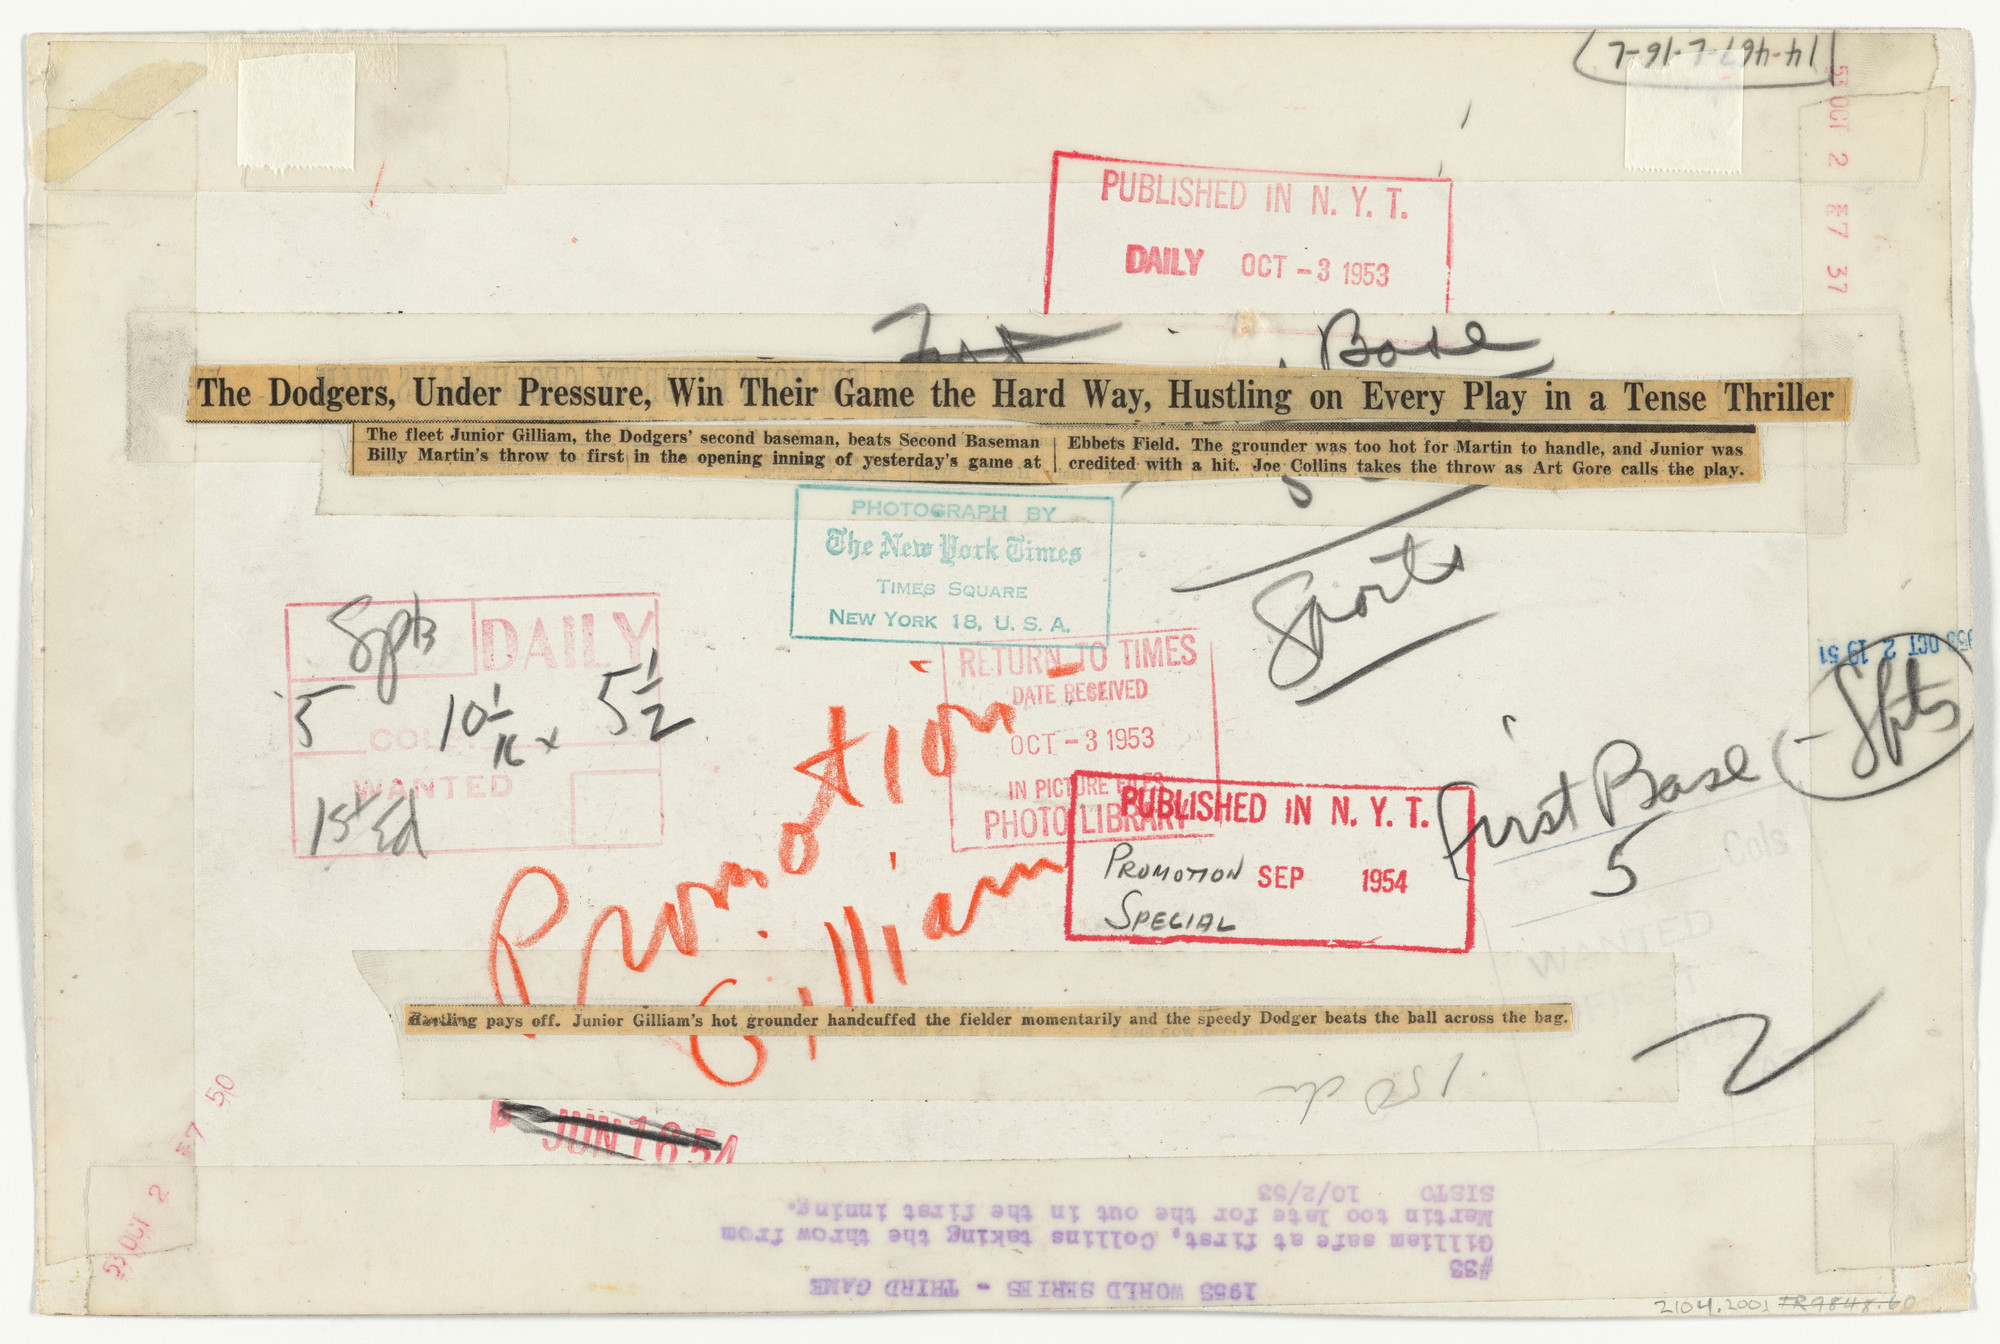 14-467-L-16-L
53 OCT 2 PM 7 37
PUBLISHED IN N. Y. T.
DAILY OCT -3 1953
Base
The Dodgers, Under Pressure, Win Their Game the Hard Way, Hustling on Every Play in a Tense Thriller
The fleet Junior Gilliam, the Dodgers' second baseman, beats Second Baseman
Billy Martin's throw to first in the opening inning of yesterday's game at
Ebbets Field. The grounder was too hot for Martin to handle, and Junior was
credited with a hit. Joe Collins takes the throw as Art Gore calls the play.
PHOTOGRAPH BY
The New York Times
TIMES SQUARE
NEW YORK 18, U. S. A.
Sports
DAILY
5 10 1/16 x 5 1/2
COLS.
WANTED
1st Ed
RETURN TO TIMES
DATE RECEIVED
OCT -3 1953
IN PICTURE FILES
PHOTO LIBRARY
Promotion
Gilliam
PUBLISHED IN N. Y. T.
PROMOTION SEP 1954
SPECIAL
OCT 2 19 51
First Base - Spts
5
Cols
WANTED
2
pays off. Junior Gilliam's hot grounder handcuffed the fielder momentarily and the speedy Dodger beats the ball across the bag.
JUN 16 54
53 OCT 2 PM 7 50
1953 WORLD SERIES - THIRD GAME
#33
Gilliam safe at first, Collins taking the throw from
Martin too late for the out in the first inning.
SISTO 10/2/53
2104.2001 TR9848.60